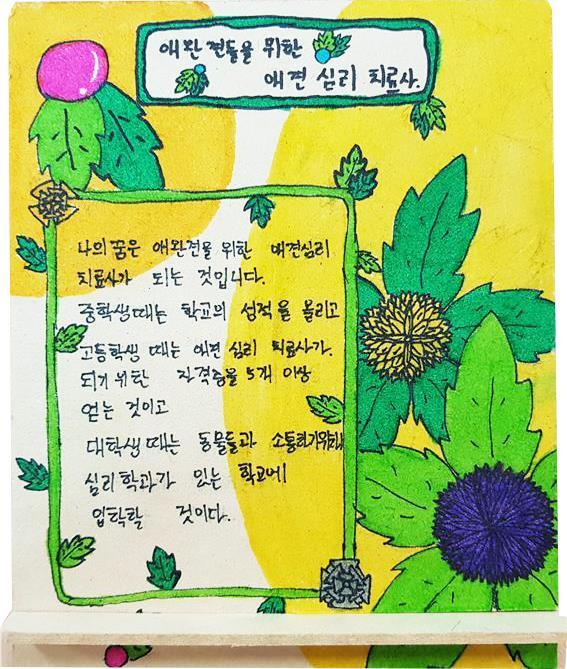 애완견들을 위한
애견 심리 치료사.
나의 꿈은 애완견을 위한 애견심리
치료사가 되는 것입니다.
중학생때는 학교의 성적을 올리고
고등학생 때는 애견 심리 치료사가.
되기 위한 자격증을 5개 이상
얻는 것이고
대학생때는 동물들과 소통하기위하여
심리학과가 있는 학교에
입학할 것이다.